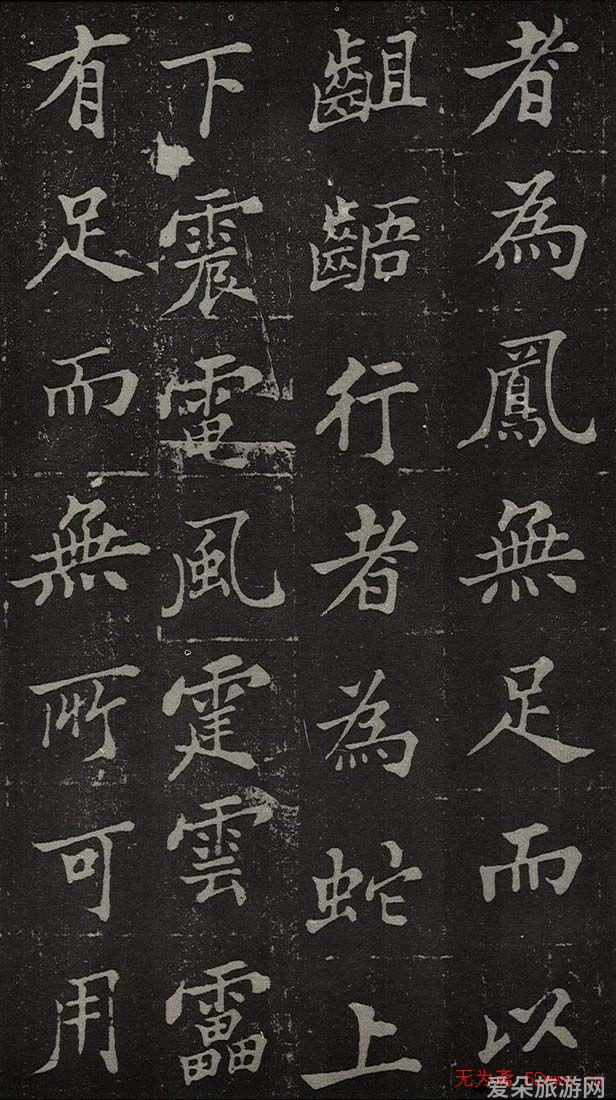 者為鳳無足而以
齟齬行者為蛇上
下震電風霆雲靁
有足而無所可用
无为斋
爱朵旅游网